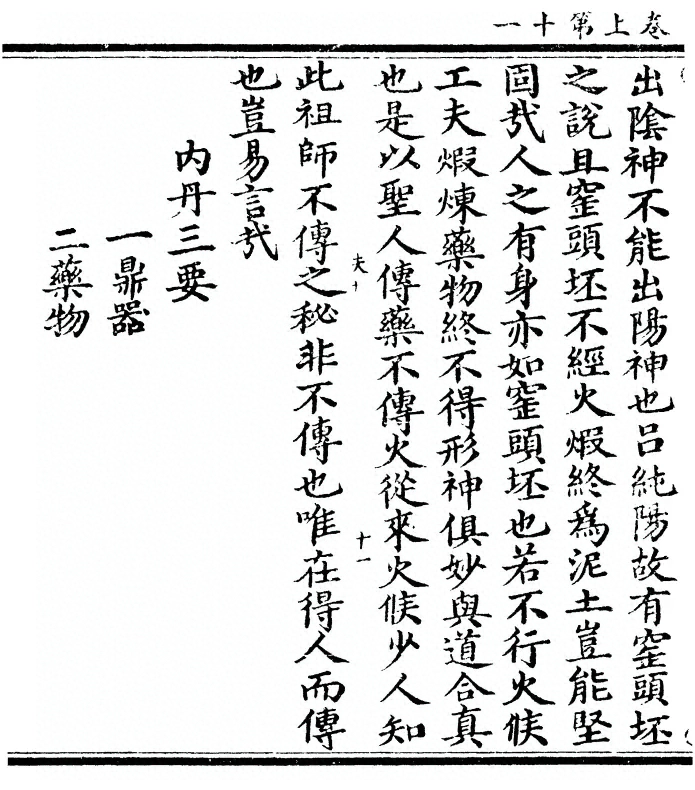 卷上第十一
出陰神不能出陽神也呂純陽故有窑頭坯
之說且窑頭坯不經火煆終爲泥土豈能堅
固㦲人之有身亦如窑頭坯也若不行火候
工夫煆煉藥物終不得形神俱妙與道合真
也是以聖人傳藥不傳火從來火候少人知
夫十
十一
此祖師不傳之秘非不傳也唯在得人而傳
也豈易言㦲
内丹三要
一鼎器
二藥物